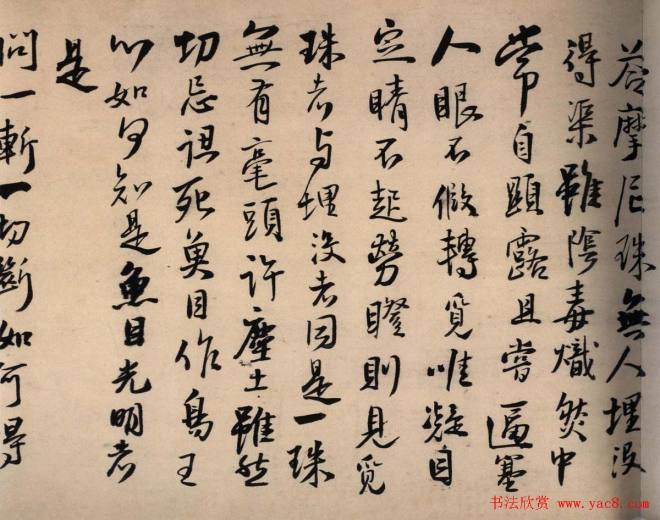 荅摩尼珠無人埋没
得渠雖陰毒熾然中
常自顯露且嘗逼塞
人眼不假轉覓唯凝目
定睛不起勞瞪則見覓
珠者与埋没者同是一珠
無有毫頭許塵土雖然
切忌認死魚目作烏王
以如何知是魚目光明者
是
問一斬一切斷如何得
书法欣赏 www.yac8.com